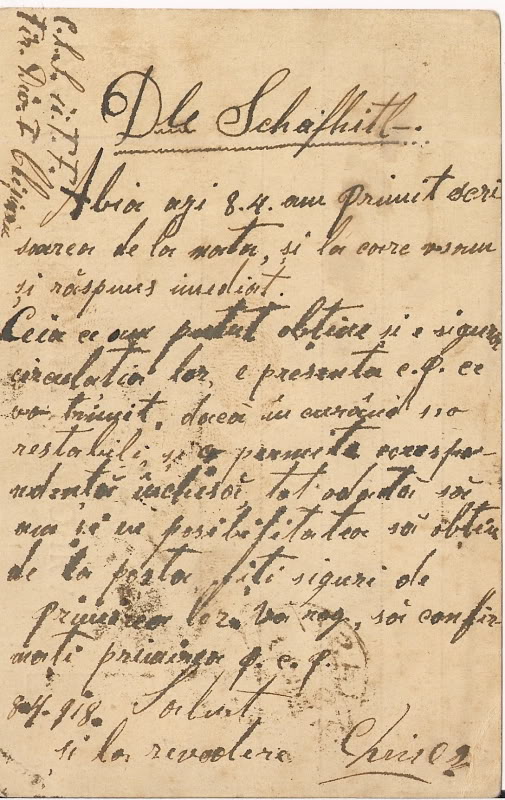 Dle Schafhitl-.
Abia azi 8.4. am primit scri
soarea de la nata, și la care v-am
și răspuns imediat.
Ceia ce am putut obține și e sigură
circulatia lor, e presenta c.p. ce
vo trimit, dacă în curând s-o
restabili, și o permite corespo-
ndență închisă, tot odată să
am și eu posibilitatea să obțin
de la posta, fiti siguri de
primirea lor. Va rog, să confir
mati primirea p. c. p.
8.4.918. Salut
și la revedere